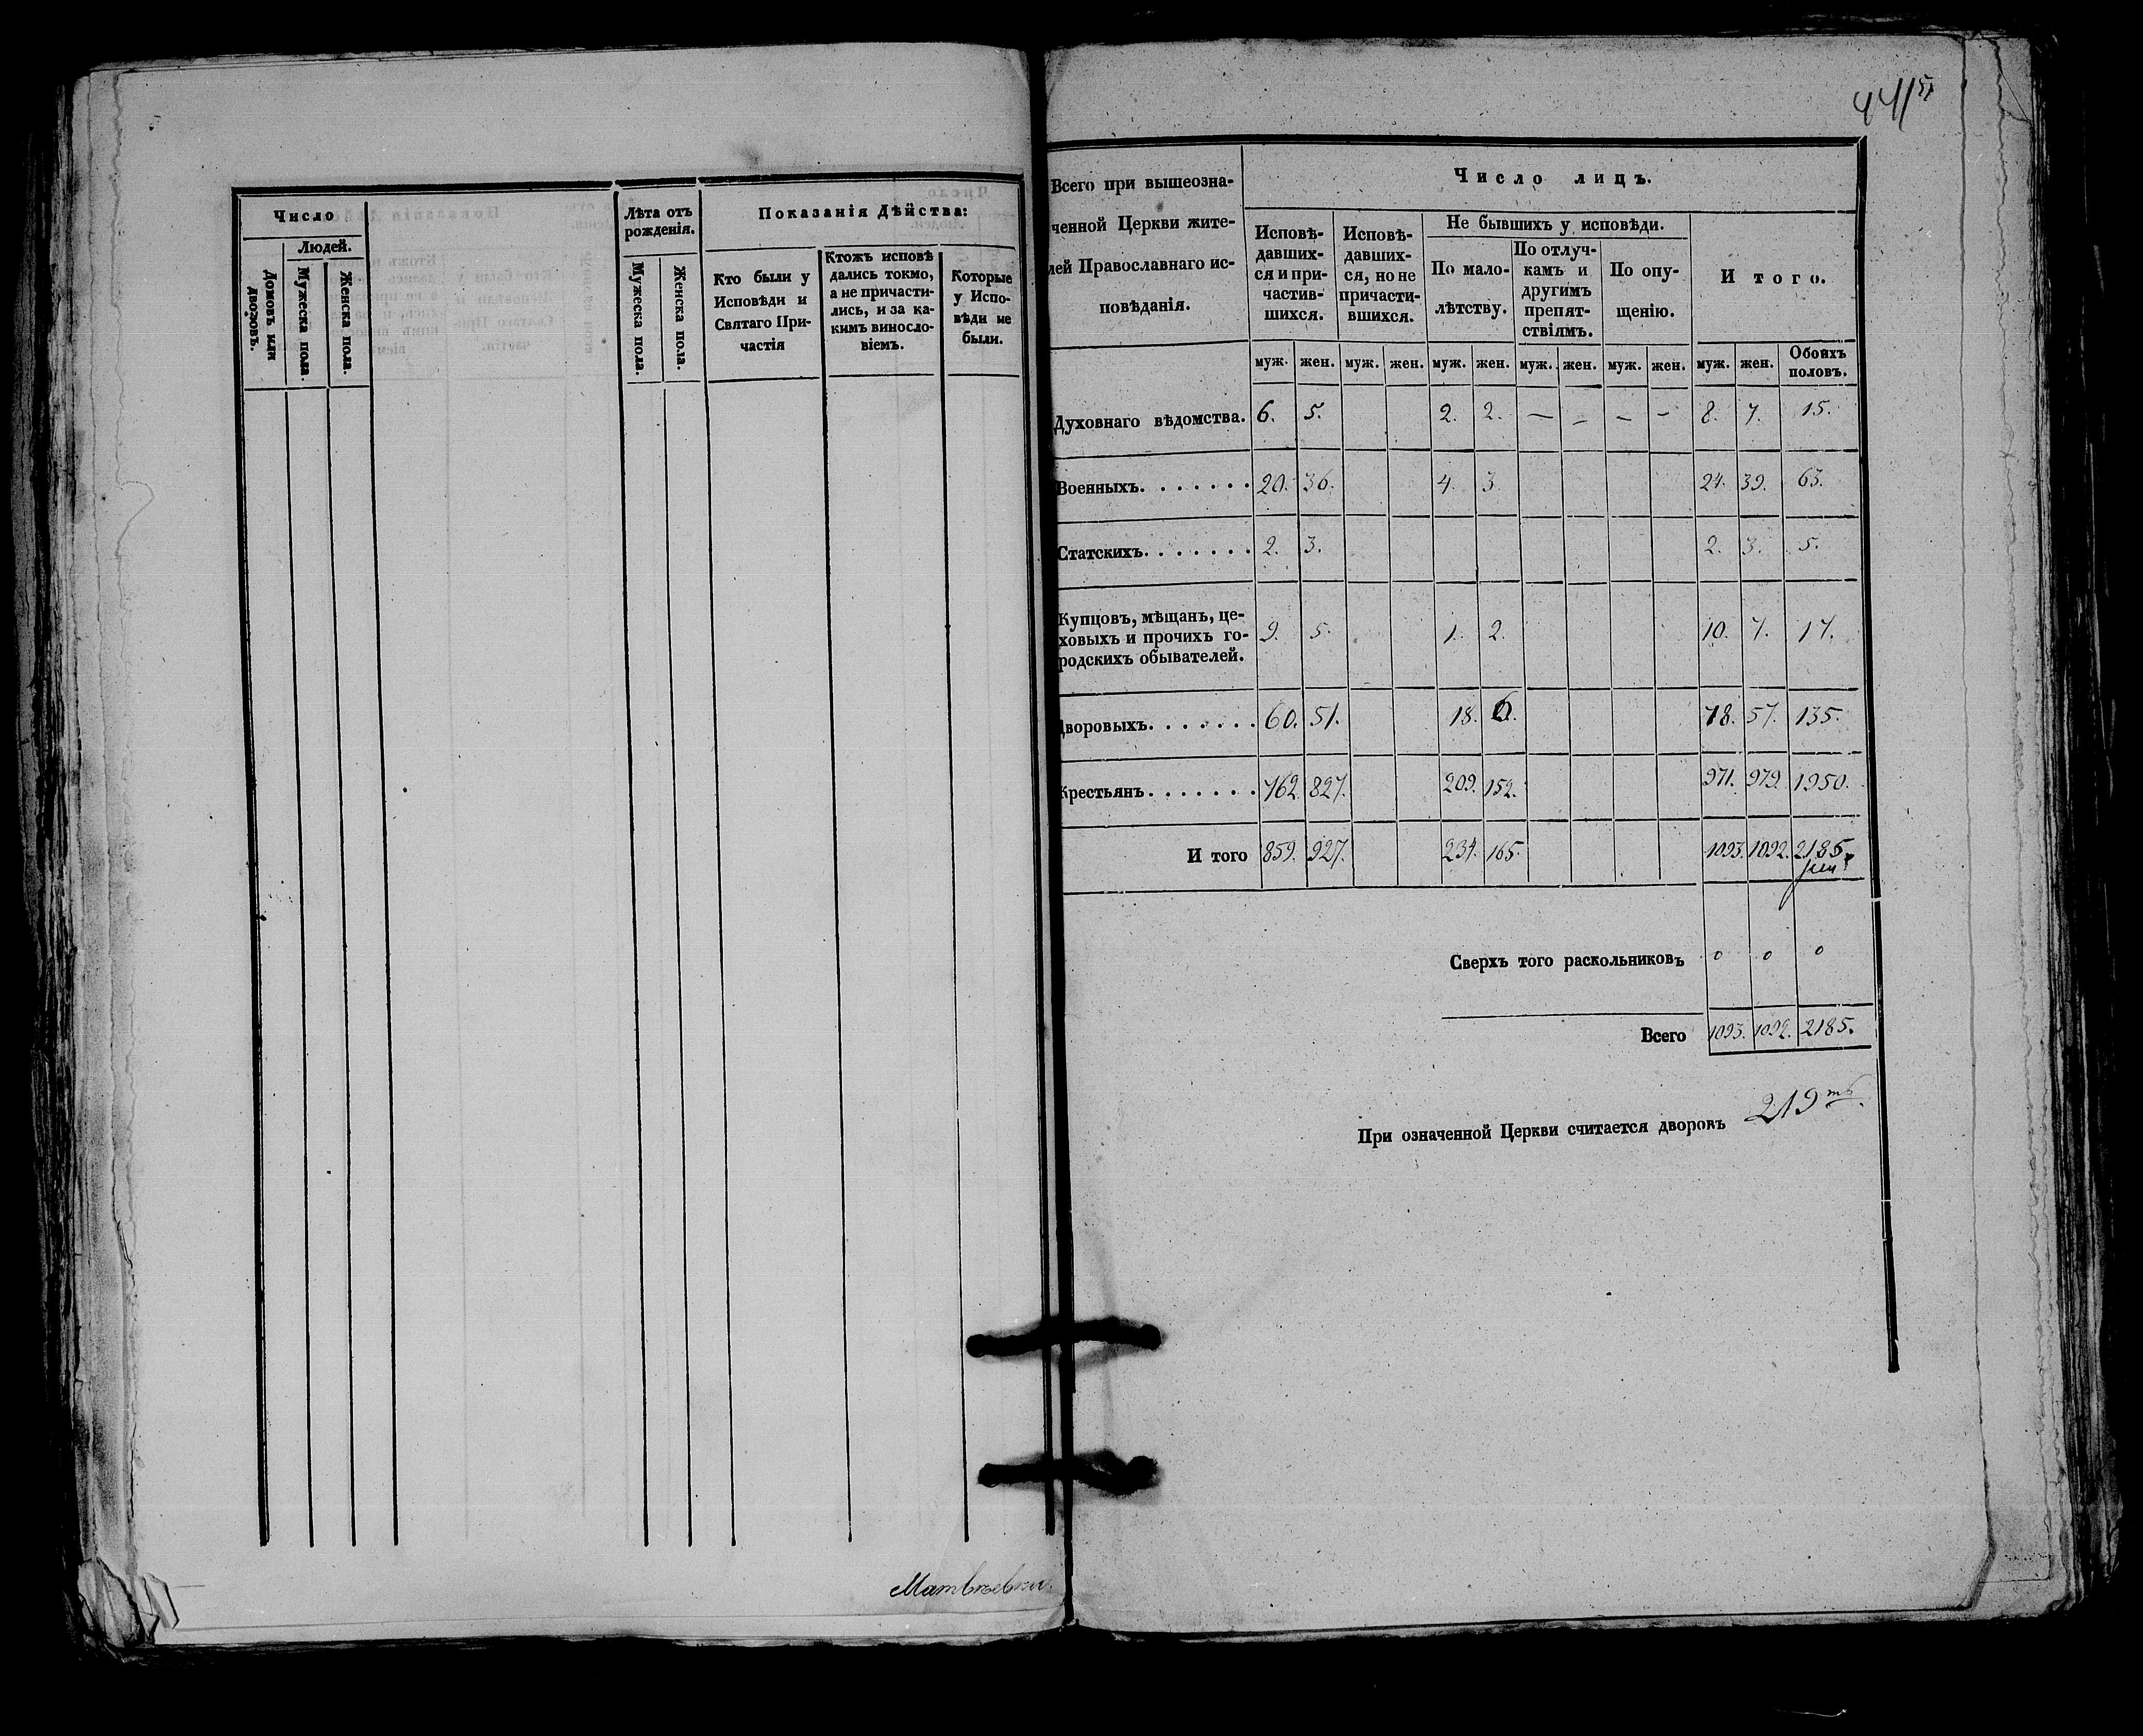 Число
Людей.
Домовъ или дворовъ.
Мужеска пола.
Женска пола.
Лѣта отъ
рожденія.
Мужеска пола.
Женска пола.
Показанія Дѣйства:
Кто были у
Исповѣди и
Святаго При-
частія
Ктожъ исповѣ
дались токмо,
а не причасти-
лись, и за ка-
кимъ виносло-
віемъ.
Которые
у Испо-
вѣди не
были.
Всего при вышеозна-
ченной Церкви жите-
лей Православнаго ис-
повѣданія.
Число лицъ.
Исповѣ-
давших-
ся и при-
частив-
шихся.
Исповѣ-
давших-
ся, но не
причасти-
вшихся.
Не бывшихъ у исповѣди.
По мало-
лѣтству.
По отлуч-
камъ и
другимъ
препят-
ствіямъ.
По опу-
щенію.
И того.
муж. жен. муж. жен. муж. жен. муж. жен. муж. жен. муж. жен. Обоихъ
половъ.
Духовнаго вѣдомства. 6. 5. 2. 2. — - — - 8. 7. 15.
Военныхъ. . . . . . . 20. 36. 4. 3. 24. 39. 63.
Статскихъ. . . . . . . 2. 3. 2. 3. 5.
Купцовъ, мѣщанъ, це-
ховыхъ и прочихъ го-
родскихъ обывателей. 9. 5. 1. 2. 10. 7. 17.
Дворовыхъ. . . . . . . 60. 51. 18. 6. 78. 57. 135.
Крестьянъ. . . . . . . 762. 827. 209. 152. 971. 979. 1950.
И того 859. 927. 234. 165. 1093. 1092. 2185.
Сверхъ того раскольниковъ 0 0 0
Всего 1093. 1092. 2185.
При означенной Церкви считается дворовъ 219тъ.